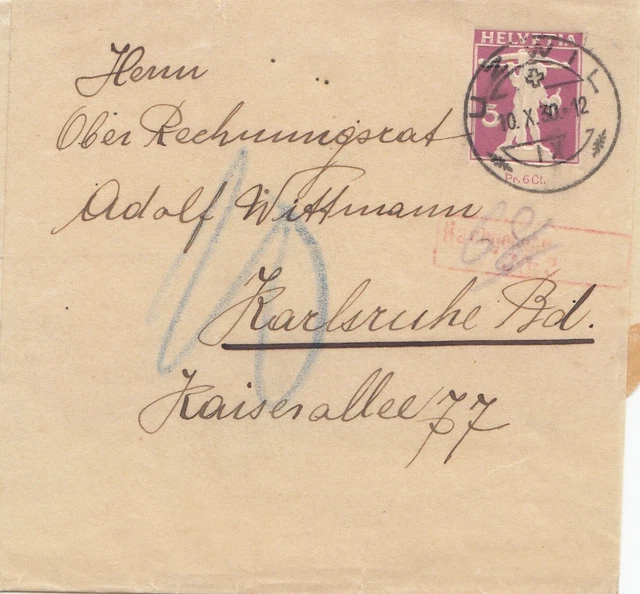 HELVETIA
5
Pr. 6 Ct.
UZWIL
10.X.30.-12
Herrn
Ober Rechnungsrat
Adolf Wittmann
Karlsruhe Bd.
Kaiserallee 77
10